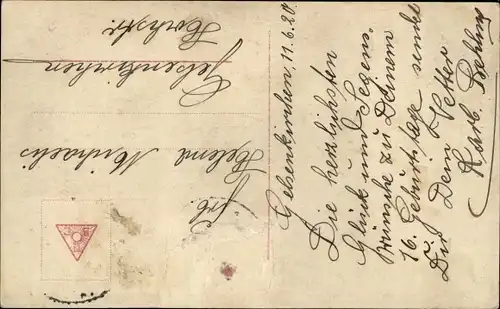 Gelsenkirchen, 11.6.20.
Die herzlichsten
Glück und Segens.
wünsche zu Deinem
16. Geburtstage sendet
Dir Dein Vetter
Karl
Frl.
Helene Michaelis
Gelsenkirchen
Hochstr.